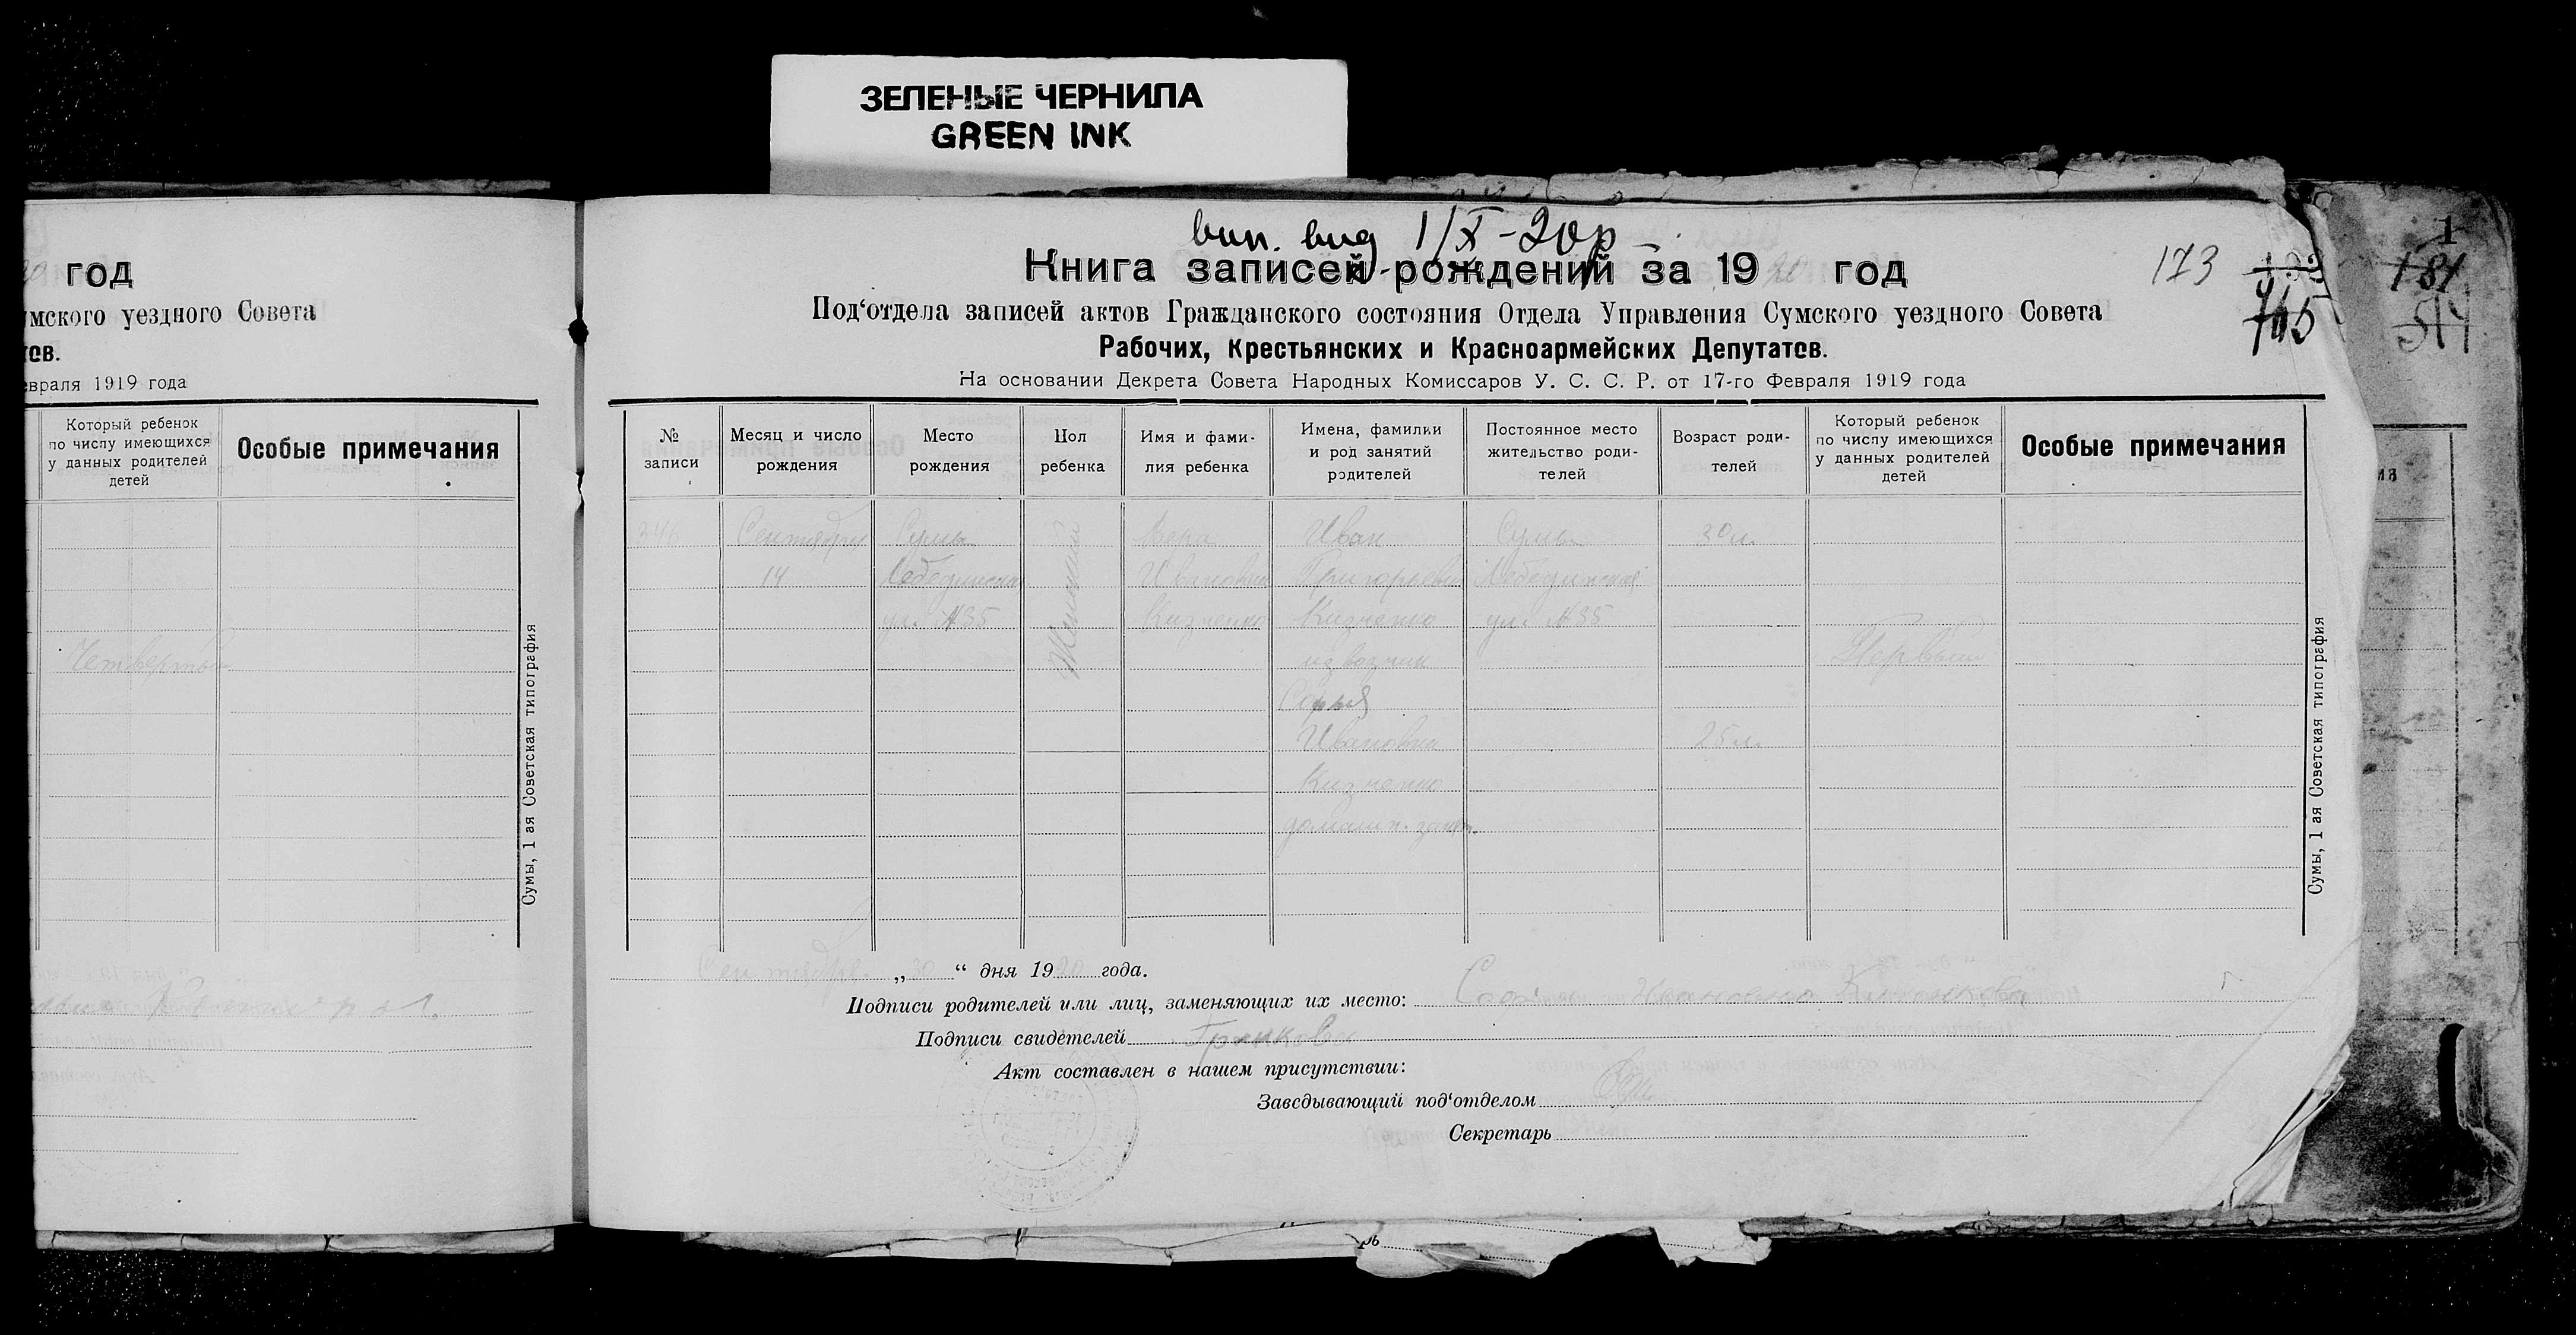 ЗЕЛЕНЫЕ ЧЕРНИЛА
GREEN INK
год
мского уездного Совета
тов.
евраля 1919 года
Который ребенок
по числу имеющихся
у данных родителей
детей
Особые примечания
Четвертый
Сумы, 1 ая Советская типография
вип. вид 1/X-20р
Книга записей рождений за 1920 год
173
765
Под‘отдела записей актов Гражданского состояния Отдела Управления Сумского уездного Совета
Рабочих, Крестьянских и Красноармейских Депутатов.
На основании Декрета Совета Народных Комиссаров У. С. С. Р. от 17-го Февраля 1919 года
№
записи
Месяц и число
рождения
Место
рождения
Пол
ребенка
Имя и фами-
лия ребенка
Имена, фамилии
и род занятий
родителей
Постоянное место
жительство роди-
телей
Возраст роди-
телей
Который ребенок
по числу имеющихся
у данных родителей
детей
Особые примечания
346
Сентября
14
Сумы
Лебединская
ул. №35
Женский
Вера
Ивановна
Кизченко
Иван
Григорьевич
Кизченко
извозчик
Софья
Ивановна
Кизченко
домашн. занят.
Сумы
Лебединская
ул. №35
30 л.
25 л.
Первый
Сумы, 1 ая Советская типография
Сентября „30“ дня 1920 года.
Подписи родителей или лиц, заменяющих их место: Ивановна
Подписи свидетелей
Акт составлен в нашем присутствии:
Заведывающий под‘отделом
Секретарь
1
181